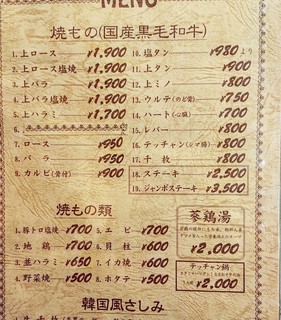 MENU
焼もの(国産黒毛和牛)
1. 上ロース ¥1,900
2. 上ロース塩焼 ¥1,900
3. 上バラ ¥1,900
4. 上バラ塩焼 ¥1,900
5. 上ハラミ ¥1,700
6.
7. ロース ¥950
8. バラ ¥950
9. カルビ(骨付) ¥900
10. 塩タン ¥980より
11. 上タン ¥900
12. 上ミノ ¥800
13. ウルテ(のど骨) ¥750
14. ハート(心臓) ¥700
15. レバー ¥800
16. テッチャン(シマ腸) ¥800
17. 千枚 ¥800
18. ステーキ ¥2,500
19. ジャンボステーキ ¥3,500
焼もの類
1. 豚トロ塩焼 ¥700
2. 地鶏 ¥700
3. 並ハラミ ¥650
4. 野菜焼 ¥500
5. エビ ¥700
6. 貝柱 ¥600
7. イカ焼 ¥600
8. ホタテ ¥500
蔘鶏湯
¥2,000
テッチャン鍋
¥2,000
韓国風さしみ